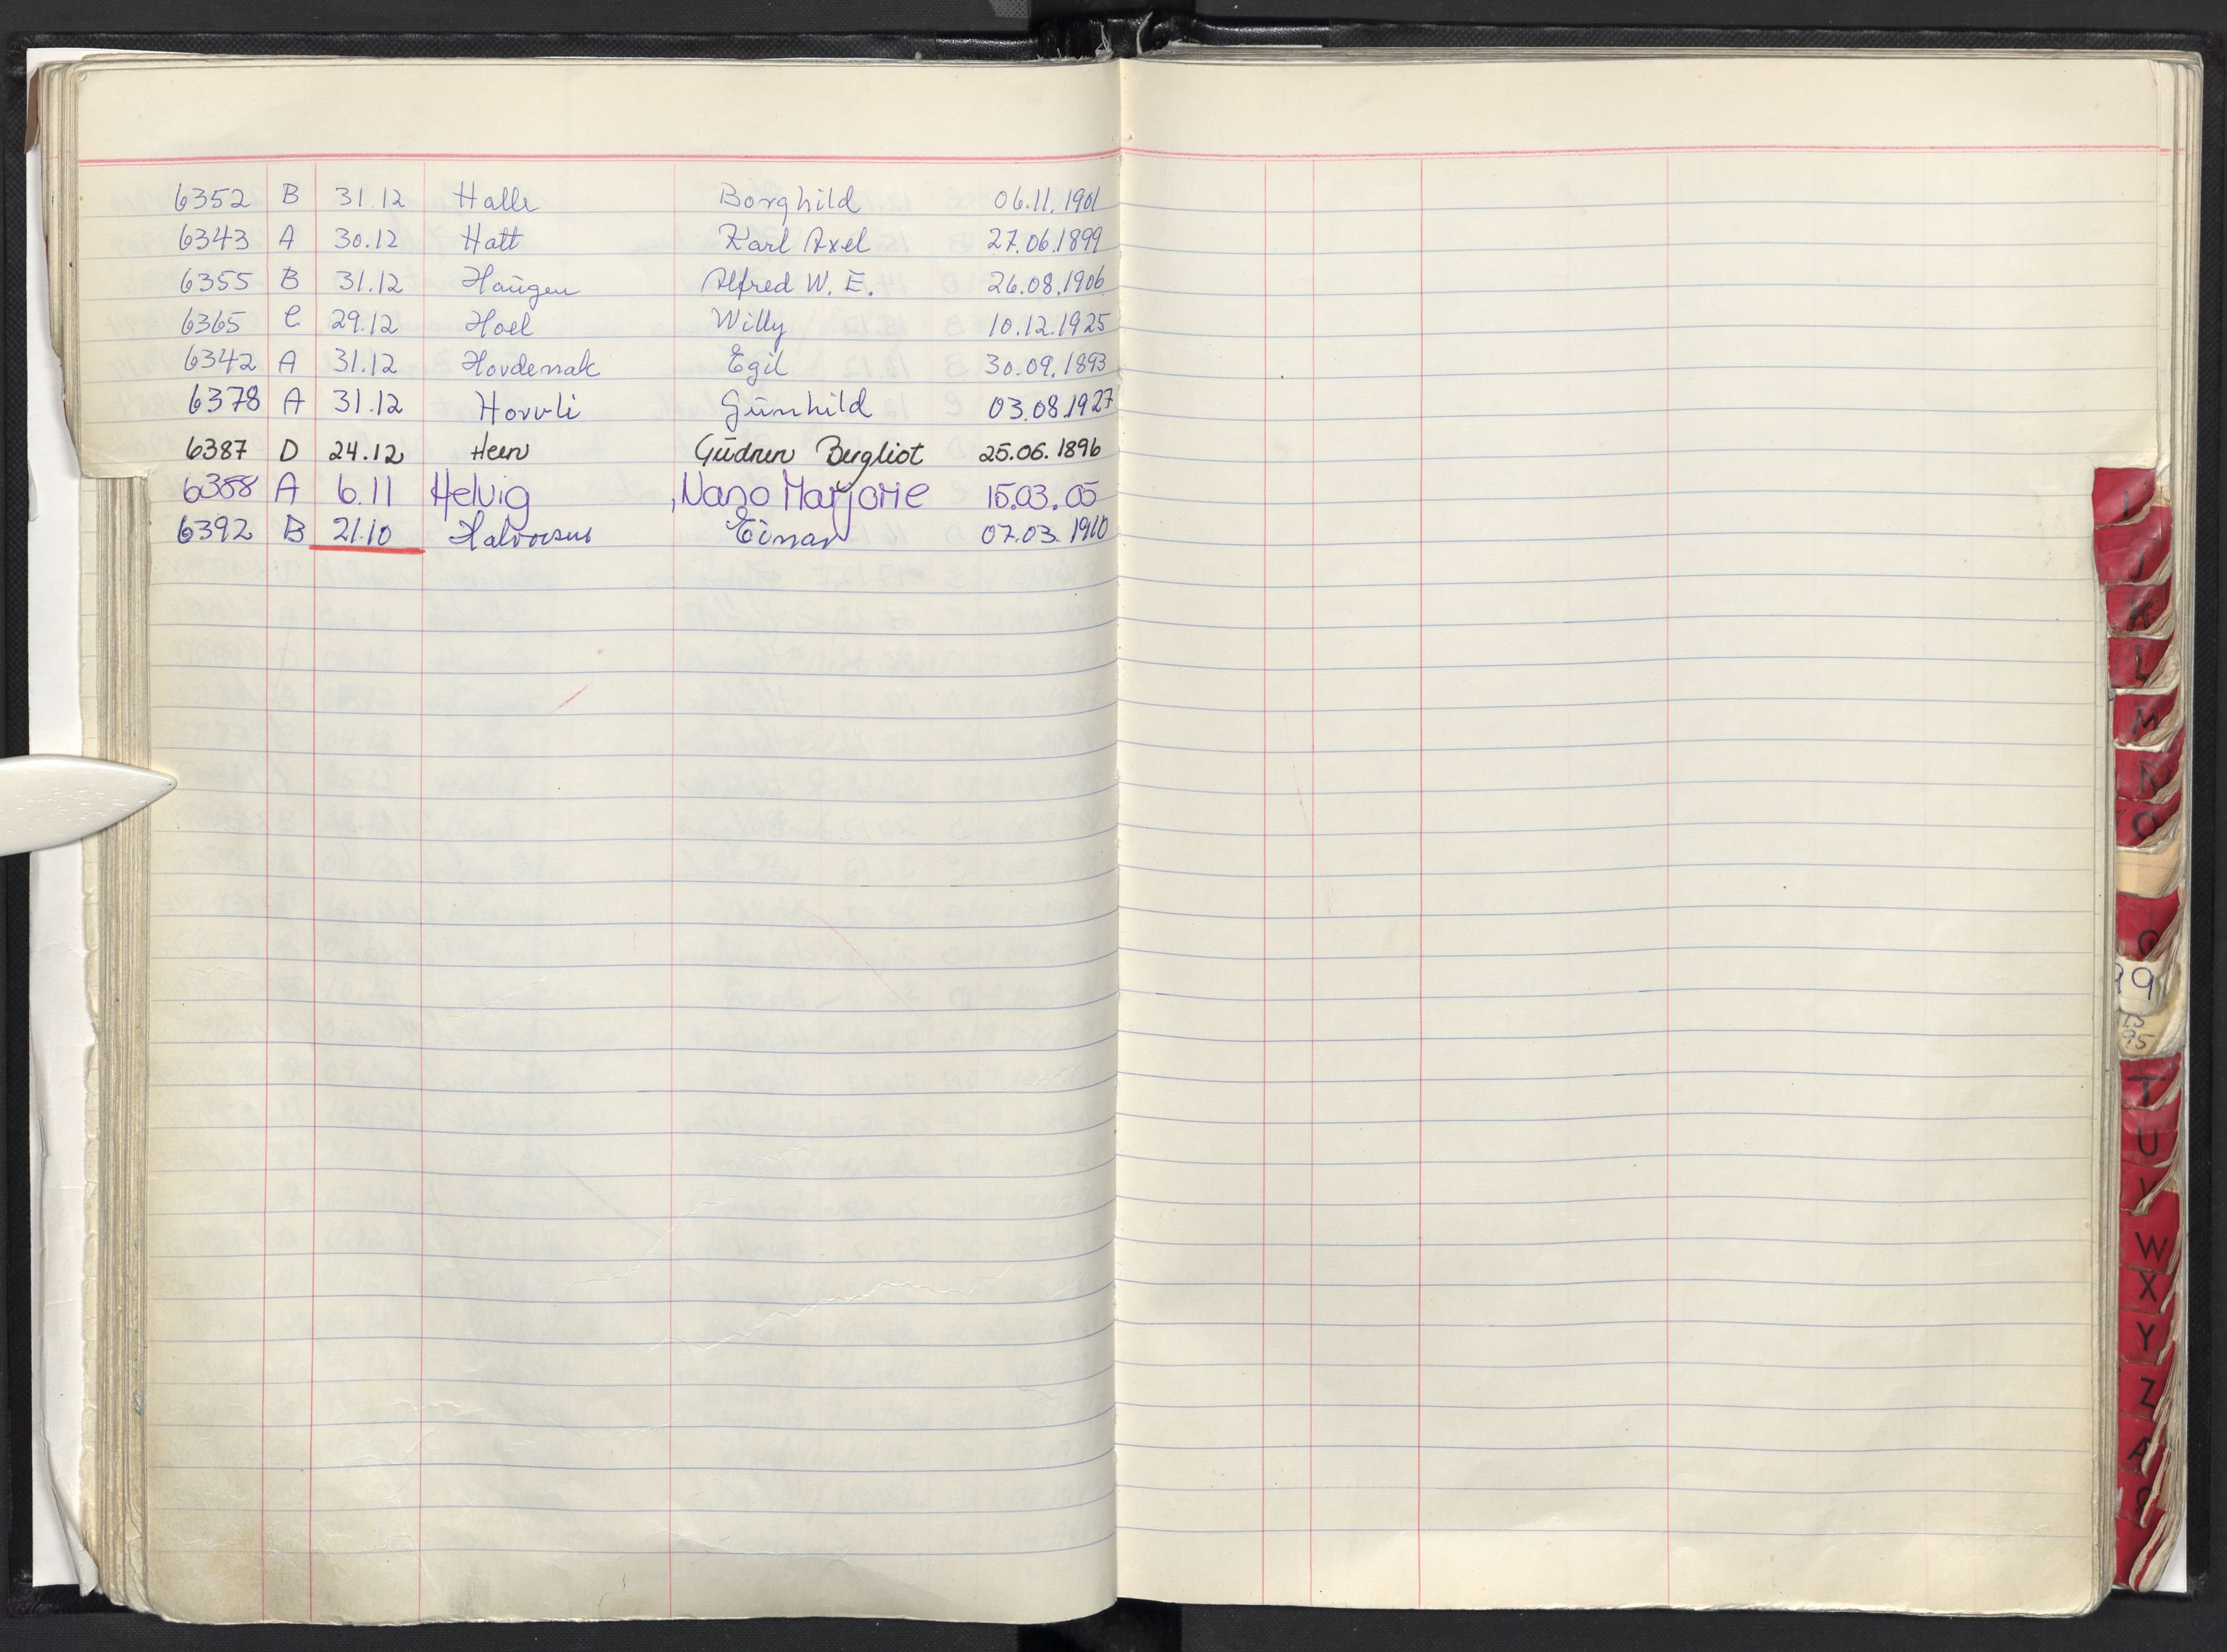 6352 B 31.12 Halle Borghild 06.11.1901
6343 A 30.12 Hatt Karl Axel 27.06.1899
6355 B 31.12 Haugen Alfred W. E. 26.08.1906
6365 C 29.12 Hoel Willy 10.12.1925
6342 A 31.12 Hovdenak Egil 30.09.1893
6378 A 31.12 Hovvli Gunhild 03.08.1927
6387 D 24.12 Heen Gudrun Bergliot 25.06.1896
6388 A 6.11 Helvig Marjorie 15.03.05
6392 B 21.10 Halvorsen Einar 07.03.1910
I
J
K
L
M
N
O
Q
T
U
V
W
X
Y
Z